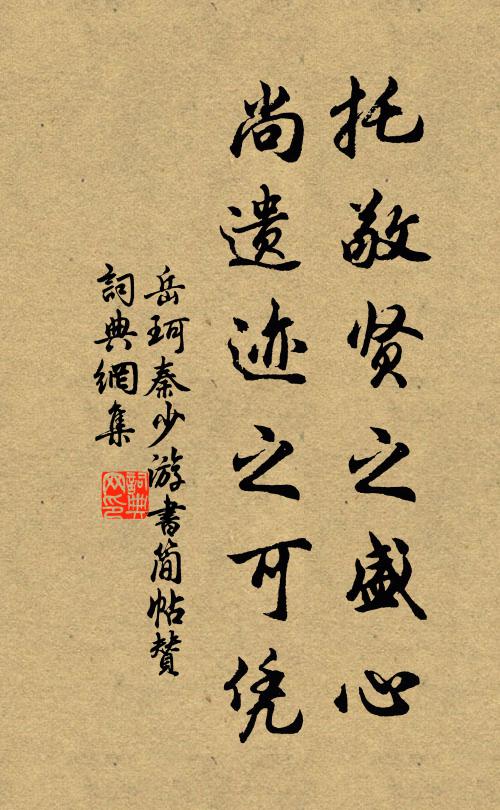 托敬贤之盛心
尚遗迹之可凭
岳珂秦少游書简帖赞
詞典網集
詞典
网印